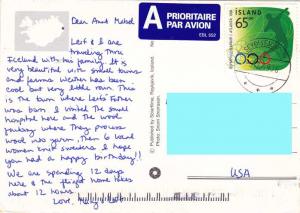 Dear Aunt Mabel
Leif & I are
traveling thru
Iceland with his family. It is
very beautiful with small towns
and farms. Weather has been
cool but very little rain. This
is the town where Leif's father
was born. I visited the small
hospital here and the wool
factory where they process
wool into yarn. Then 6 went
women knit sweaters. I hope
you had a happy birthday!!
We are spending 12 days
here & the flight home takes
about 12 hours.
Love,
A PRIORITAIRE
PAR AVION
EBL 652
ÍSLAND
65
© Published by Snerrfilme, Reykjavik, Iceland.
Photo:
USA